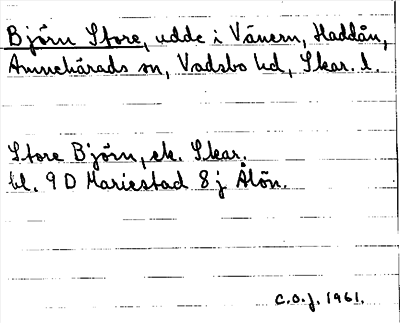 Björn Store, udde i Vänern, Haddån,
Amnehärads sn, Vadsbo hd, Skar. l.
Store Björn, ek. Skar.
bl. 9 D Mariestad 8 j Ålön.
C.O.J. 1961.